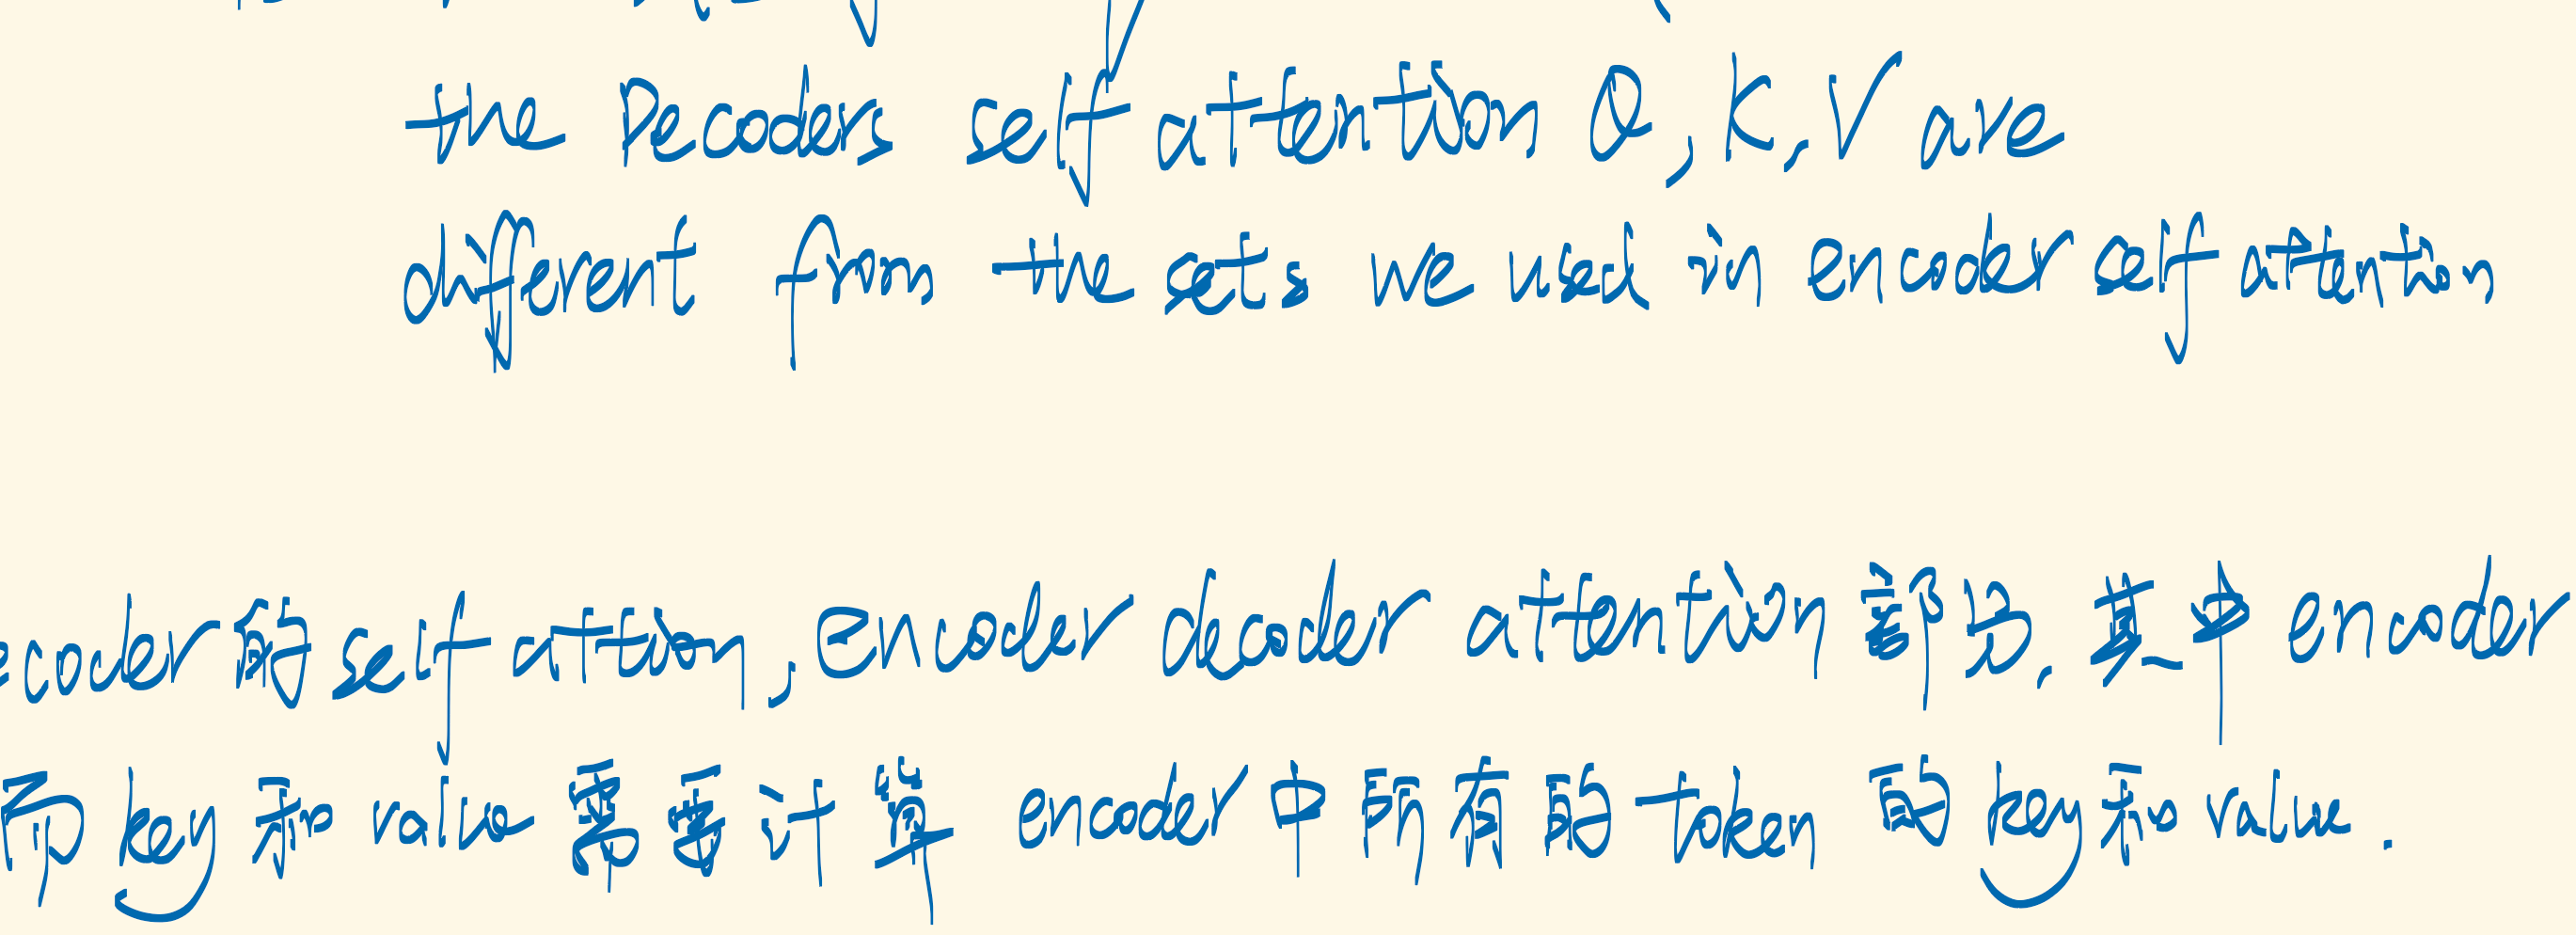 the Decoders self attention Q, K, V are
different from the sets we used in encoder self attention
ecoder的self attion, encoder decoder attention 部分, 其中encoder
而key和value需要计算 encoder中所有的token 的key和value.